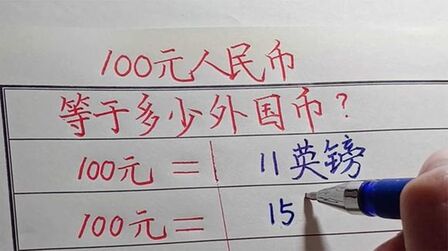 100元人民币
等于多少外国币?
100元 = 11英镑
100元 = 15